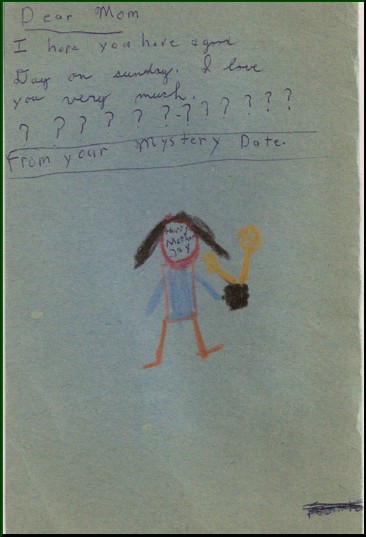 Dear Mom
I hope you have a good
Day on sunday. I love
you very much.
? ? ? ? ? ?-? ? ? ? ? ?
From your Mystery Date.
Happy
Mother
Day